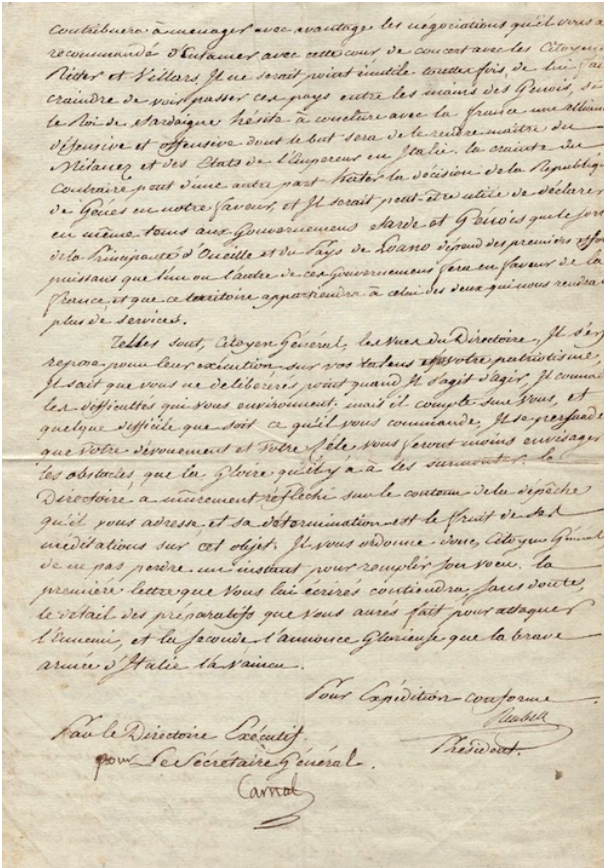 contribuera à menager avec avantage les negociations qu'il vous a
recommandé d'entamer avec cette cour de concert avec les Citoyens
Ritter et Villars. Il ne serait point inutile toutes fois, de lui fai
craindre de vous passer ces pays entre les mains des Genois, si
le Roi de Sardaigne hésite à conclure avec la france une allian
défensive et offensive dont le but sera de le rendre maitre du
Milanez et des Etats de l'Empereur en Italie. la crainte du
Contraire peut d'une autre part hater la décision de la Republiq
de Gênes en notre faveur, et Il serait peut-être utile de déclarer
en même tems aux Gouvernemens Sarde et Genois que le sort
de la Principauté d'Oneille et du Pays de Loano dépend des premiers effor
puissans que l'un ou l'autre de ces Gouvernemens fera en faveur de la
france et que ce territoire appartiendra à celui des deux qui nous rendra
plus de services.
Telles sont, Citoyen Général, les vues du Directoire, Il s'en
repose pour leur exécution sur vos talens et votre patriotisme,
Il sait que vous ne deliberérés point quand Il s'agit d'agir, Il connai
les difficultés qui vous environnent, mais il compte sur vous, et
quelque difficile que soit ce qu'il vous commande, Il se persuade
que votre dévouement et votre zèle vous feront moins envisager
les obstacles que la Gloire qu'il y a à les surmonter. le
Directoire a mûrement réflechi sur le contenu de la dépêche
qu'il vous adresse et sa détermination est le fruit de ses
méditations sur cet objet. Il vous ordonne donc, Citoyen Général,
de ne pas perdre un instant pour remplir son voeu. la
première lettre que vous lui écrirés contiendra, sans doute,
le détail des préparatifs que vous aurés fait pour attaquer
l'Ennemi, et la seconde l'annonce Glorieuse que la brave
armée d'Italie l'a vaincu.
Pour Expédition conforme
Reubell
Président.
Par le Directoire Exécutif.
pour Le Secrétaire Général.
Carnot